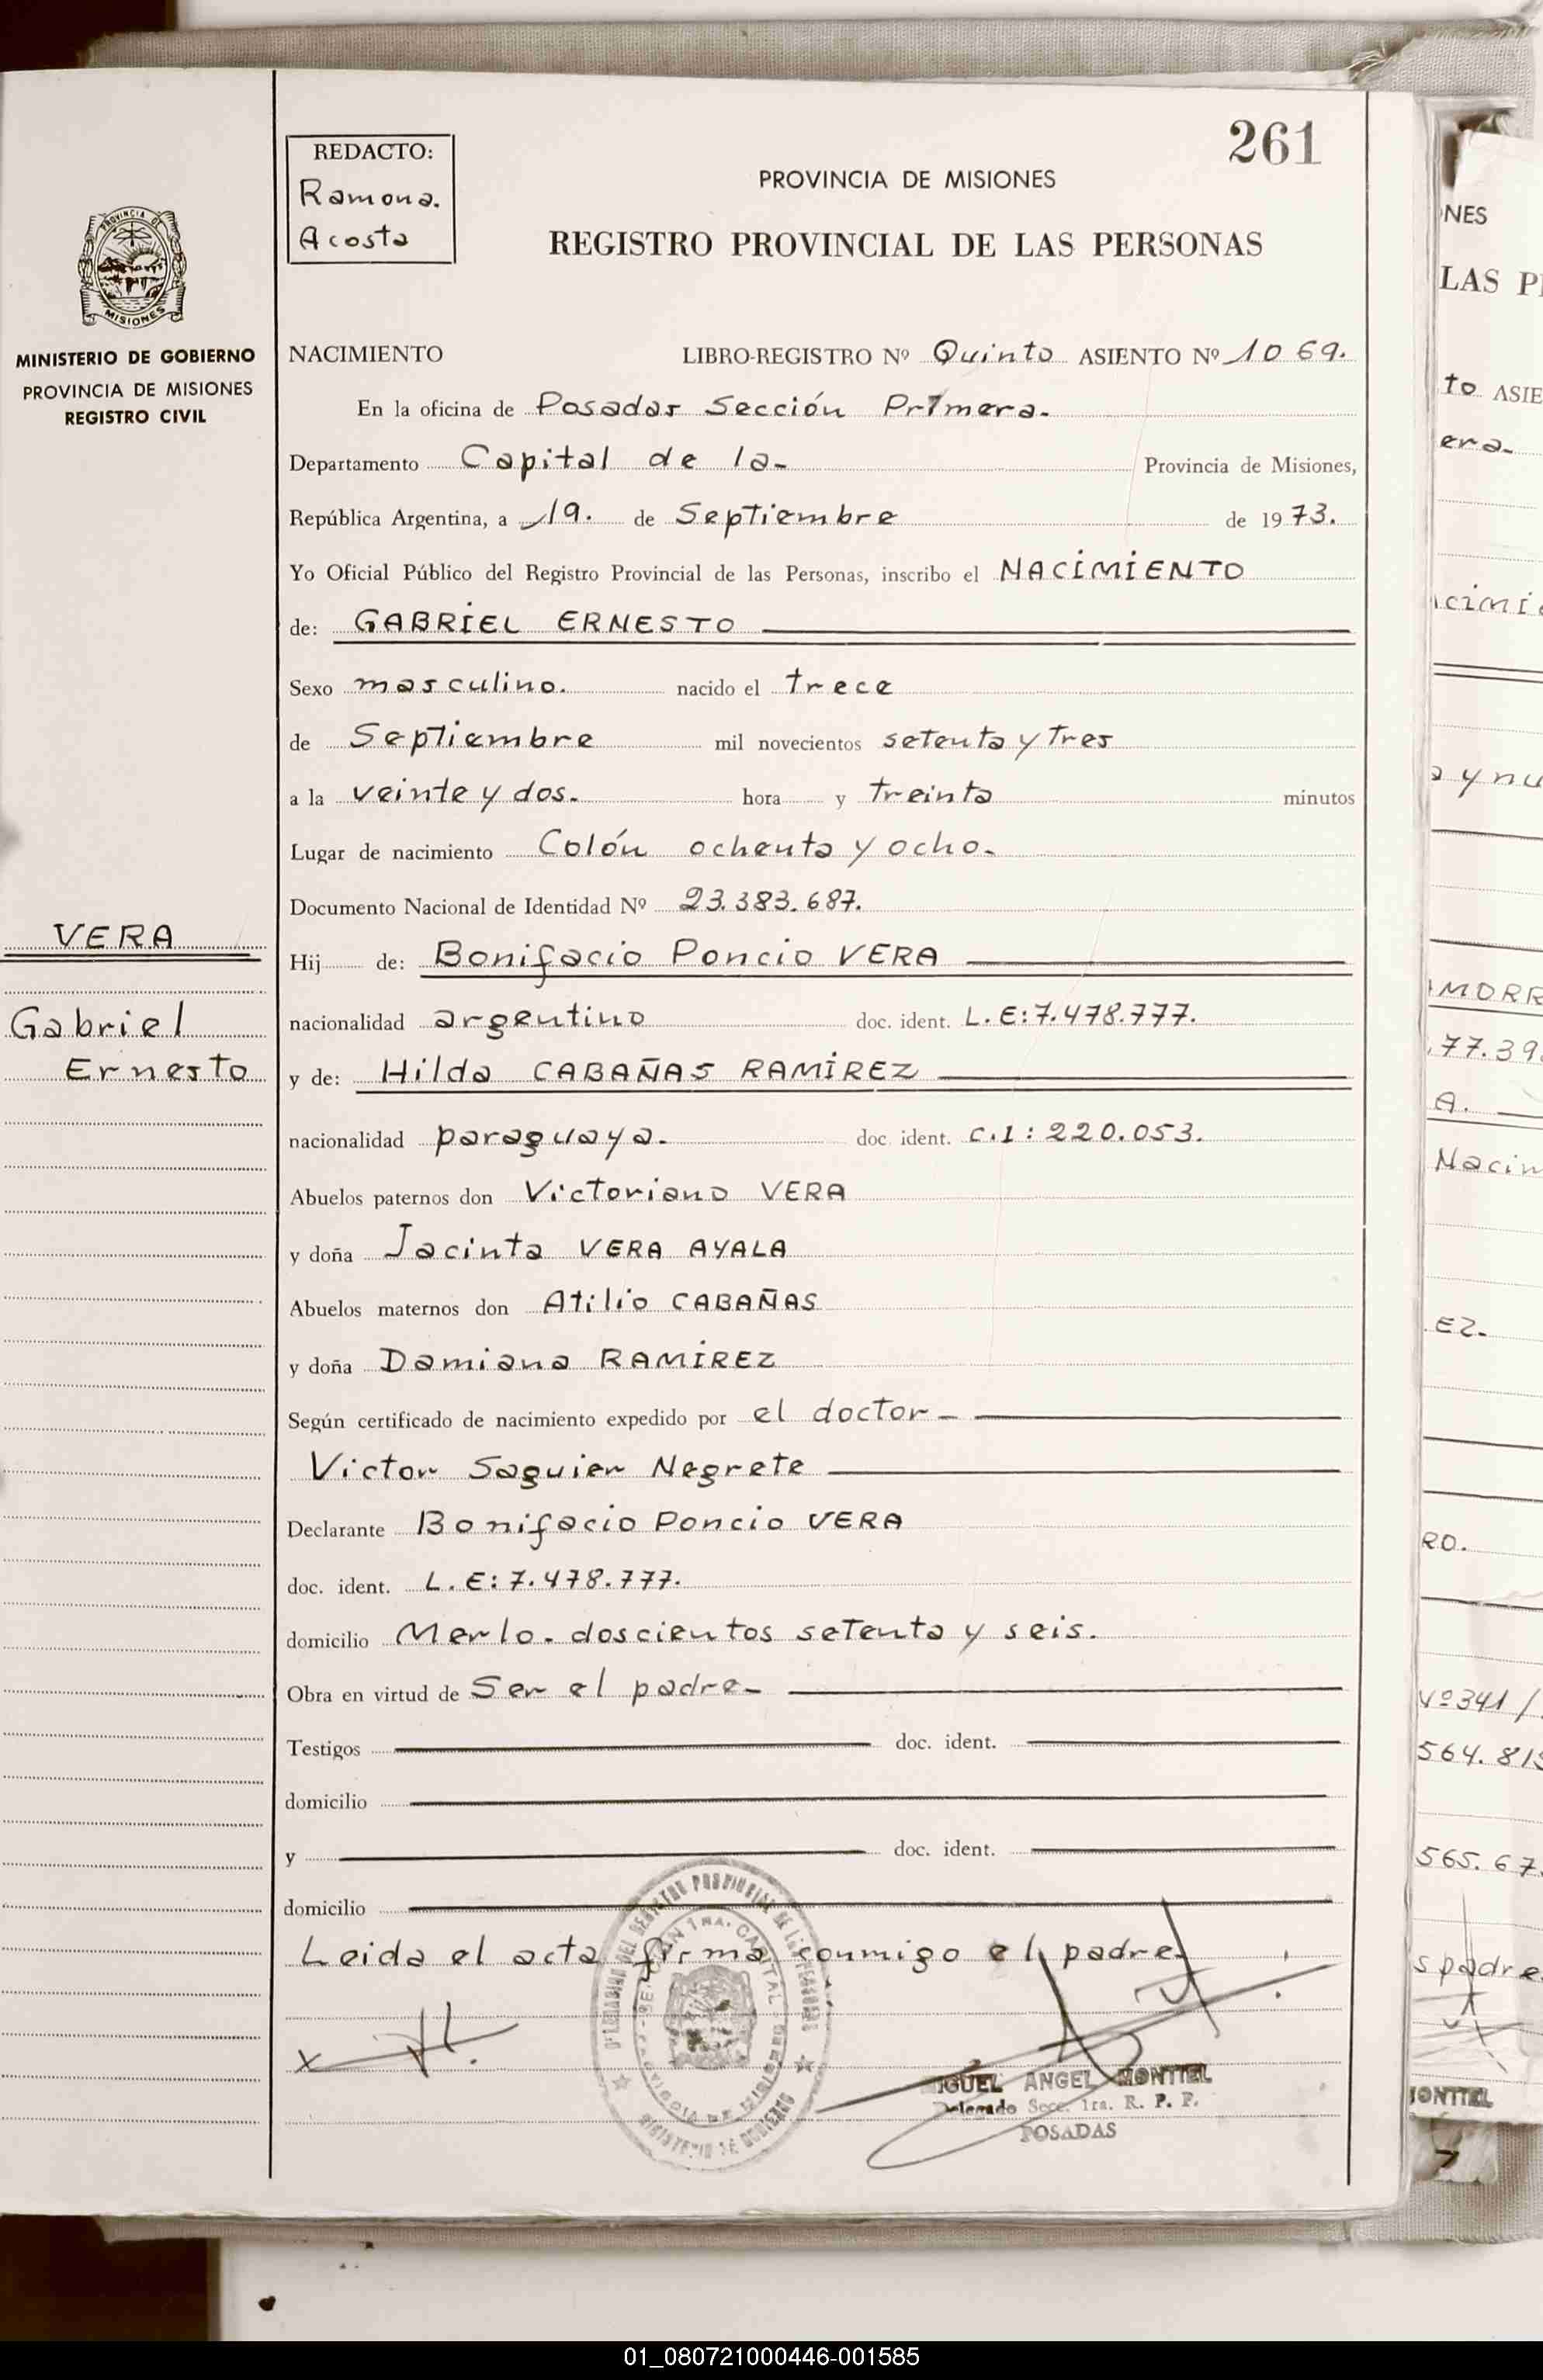 261
REDACTO:
Ramona.
Acosta
PROVINCIA DE MISIONES
REGISTRO PROVINCIAL DE LAS PERSONAS
PROVINCIA DE
MISIONES
MINISTERIO DE GOBIERNO
PROVINCIA DE MISIONES
REGISTRO CIVIL
NACIMIENTO LIBRO-REGISTRO Nº Quinto ASIENTO Nº 1069.
En la oficina de Posadas Sección Primera.
Departamento Capital de la- Provincia de Misiones,
República Argentina, a 19. de Septiembre de 1973.
Yo Oficial Público del Registro Provincial de las Personas, inscribo el NACIMIENTO
de: GABRIEL ERNESTO
Sexo masculino. nacido el trece
de Septiembre mil novecientos setenta y tres
a la veinte y dos. hora y treinta minutos
Lugar de nacimiento Colón ochenta y ocho.
Documento Nacional de Identidad Nº 23.383.687.
VERA
Gabriel
Ernesto
Hij de: Bonifacio Poncio VERA
nacionalidad argentino doc. ident. L.E:7.478.777.
y de: Hilda CABAÑAS RAMÍREZ
nacionalidad paraguaya. doc ident. C.I: 220.053.
Abuelos paternos don Victoriano VERA
y doña Jacinta VERA AYALA
Abuelos maternos don Atilio CABAÑAS
y doña Damiana RAMÍREZ
Según certificado de nacimiento expedido por el doctor-
Victor Saguier Negrete
Declarante Bonifacio Poncio VERA
doc. ident. L.E:7.478.777.
domicilio Merlo. doscientos setenta y seis.
Obra en virtud de Ser el padre-
Testigos doc. ident.
domicilio
y doc. ident.
domicilio
Leida el acta firma conmigo el padre.
ANGEL MONTIEL
Delegado Secc. 1ra. R. P. P.
POSADAS
NES
LAS
to ASIE
era.
77.39
A.
EZ.
RO.
Nº341/
564.81
565.67
padre
01_080721000446-001585